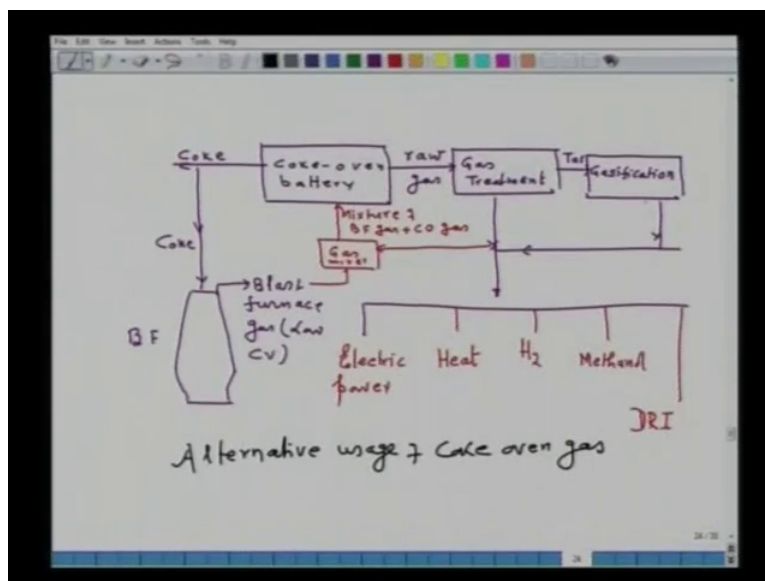 File Edit View Insert Actions Tools Help
Coke
Coke-oven
battery
raw
gas
Gas
Treatment
Tar
Gasification
Mixture of
BF gas + CO gas
Gas
mixer
Coke
Blast
furnace
gas (Low
CV)
BF
Electric
power
Heat
H2
Methanol
DRI
Alternative usage of Coke oven gas
24